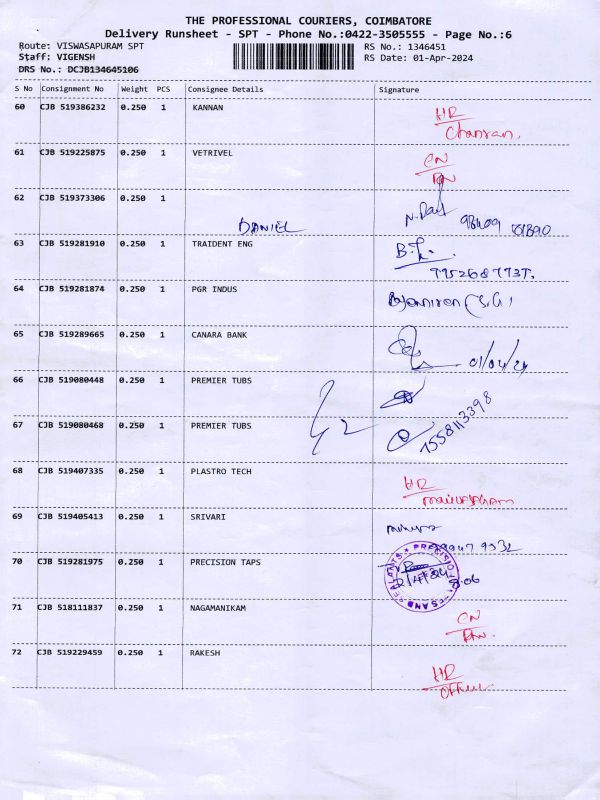 THE PROFESSIONAL COURIERS, COIMBATORE
Delivery Runsheet - SPT - Phone No.:0422-3505555 - Page No.:6
Route: VISWASAPURAM SPT
RS No.: 1346451
Staff: VIGENSH
RS Date: 01-Apr-2024
DRS No.: DCJB134645106
S No Consignment No Weight PCS Consignee Details Signature
60 CJB 519386232 0.250 1 KANNAN HR
61 CJB 519225875 0.250 1 VETRIVEL CN
62 CJB 519373306 0.250 1
DANIEL
63 CJB 519281910 0.250 1 TRAIDENT ENG
64 CJB 519281874 0.250 1 PGR INDUS
65 CJB 519289665 0.250 1 CANARA BANK
01/04/24
66 CJB 519080448 0.250 1 PREMIER TUBS
67 CJB 519080468 0.250 1 PREMIER TUBS
68 CJB 519407335 0.250 1 PLASTRO TECH HR
69 CJB 519405413 0.250 1 SRIVARI
70 CJB 519281975 0.250 1 PRECISION TAPS
71 CJB 518111837 0.250 1 NAGAMANIKAM CN
72 CJB 519229459 0.250 1 RAKESH HR